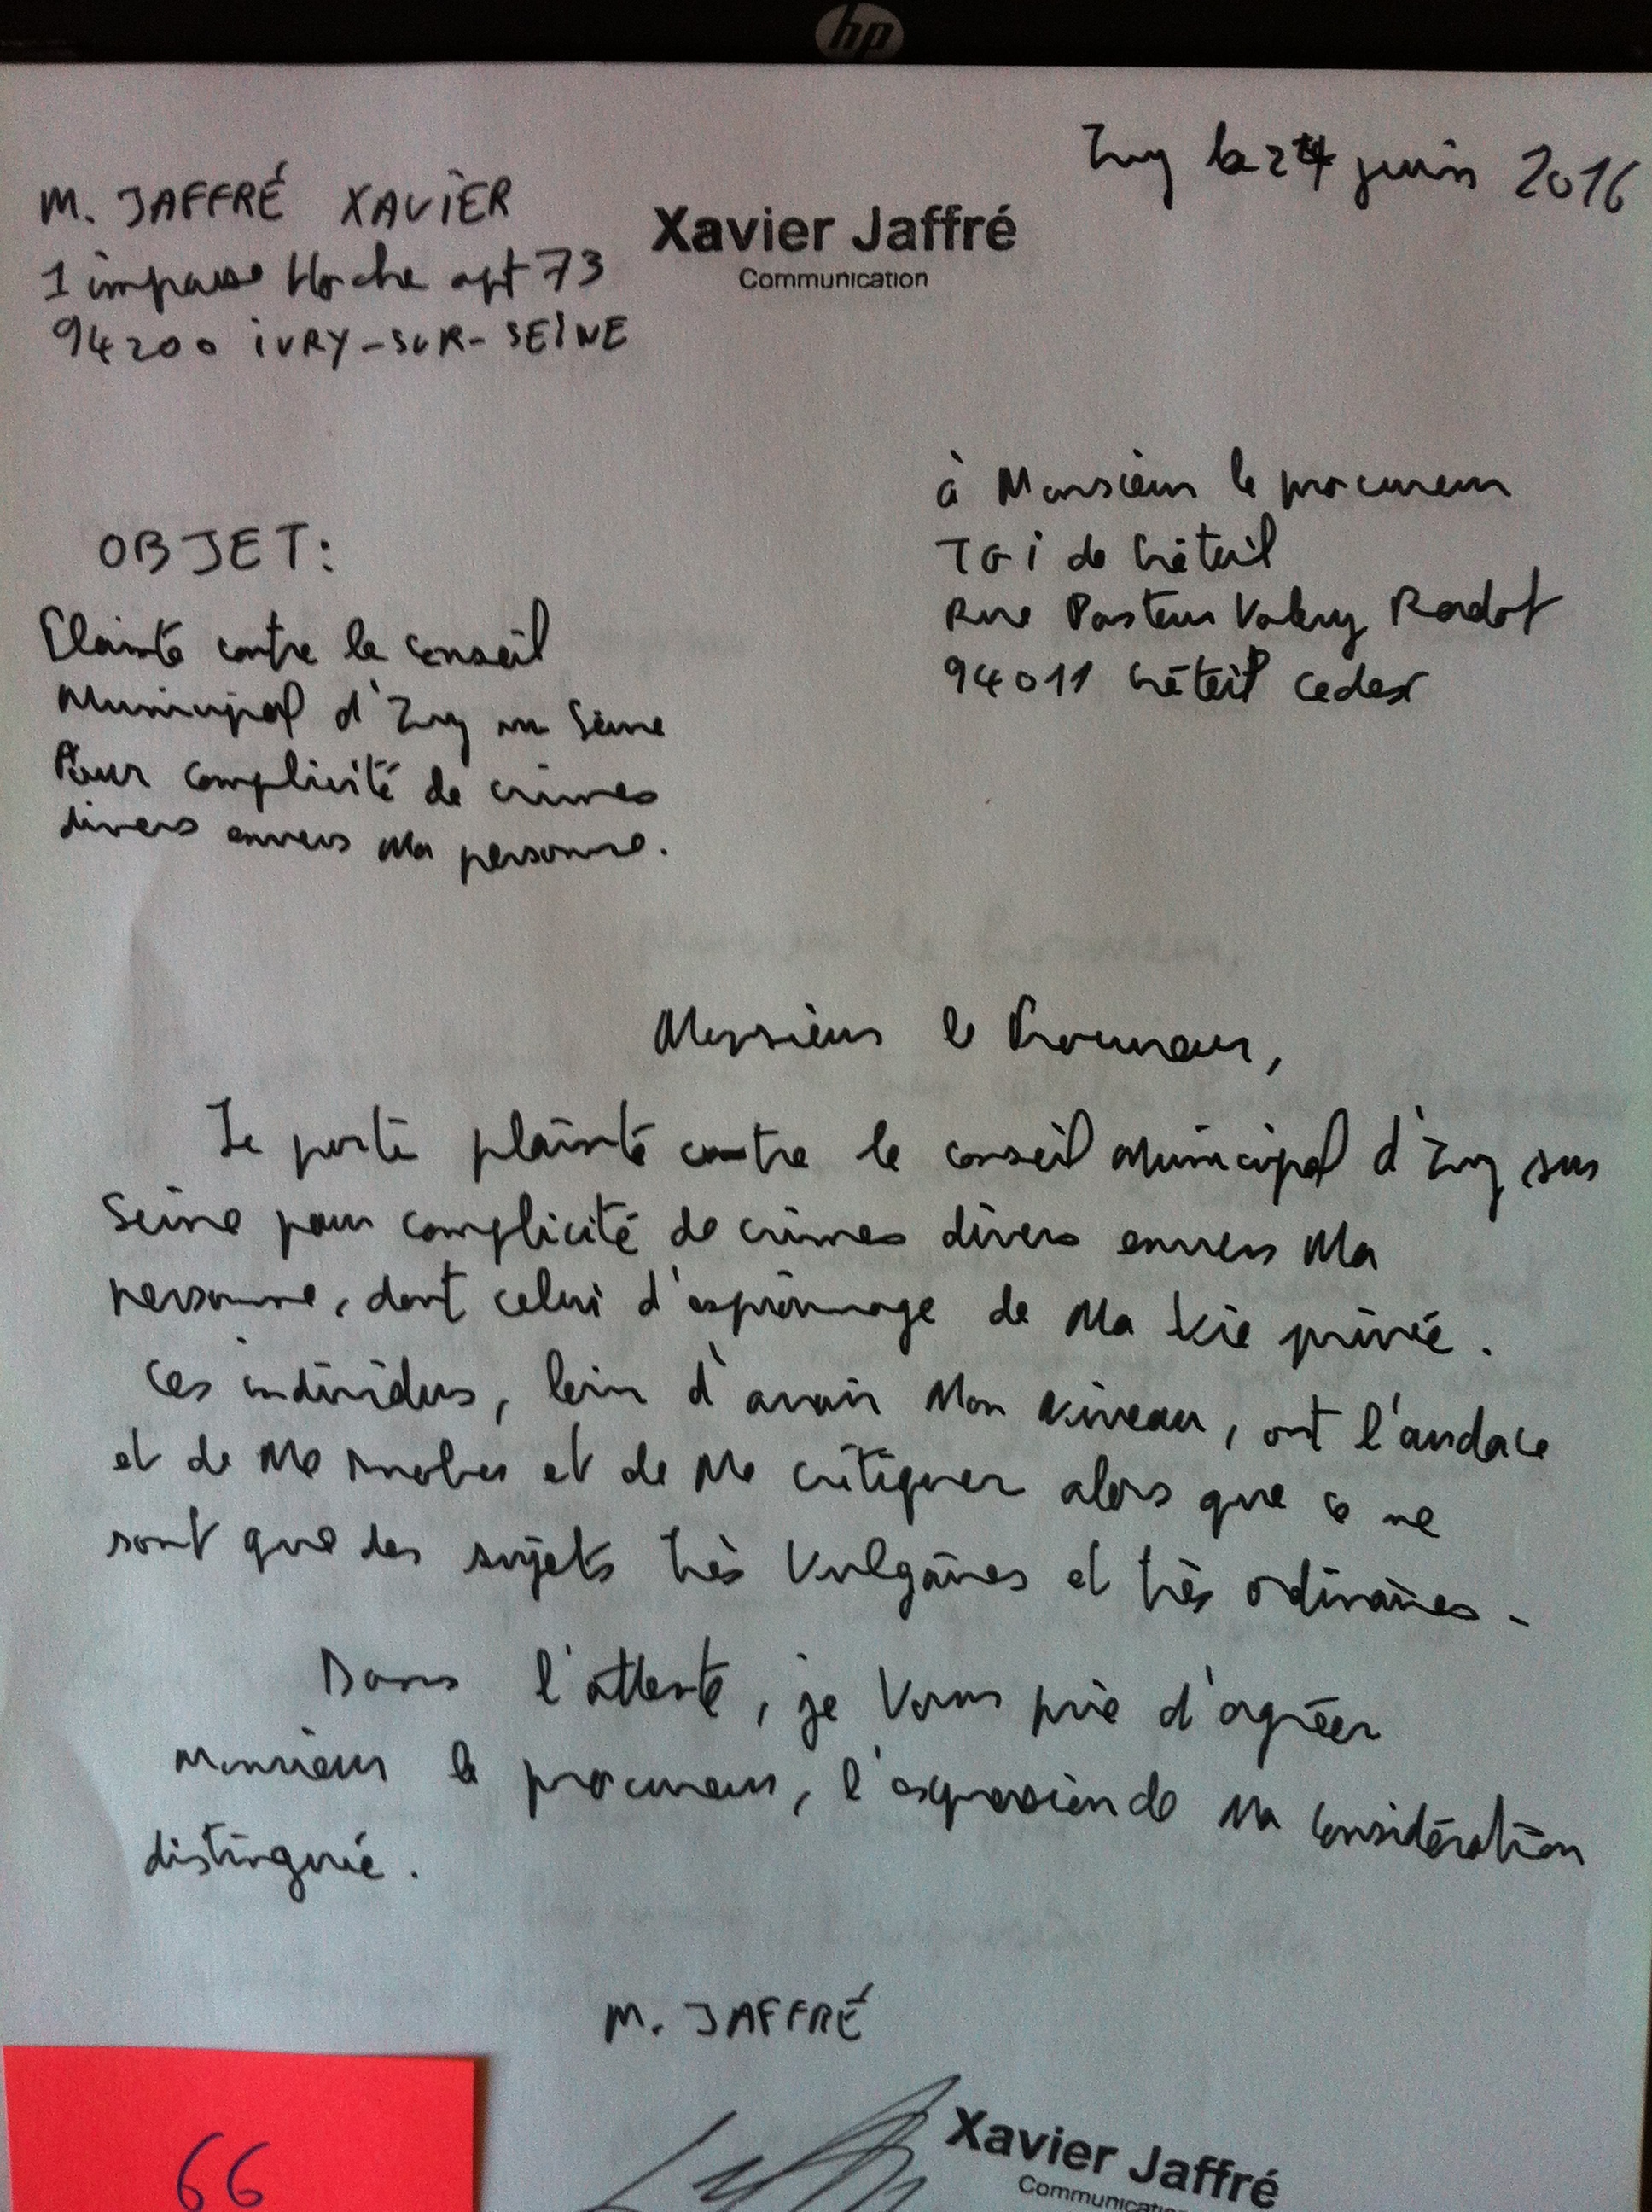 hp
Ivry le 24 juin 2016
M. JAFFRÉ XAVIER
1 impasse Hoche apt 73
94200 IVRY-SUR-SEINE
Xavier Jaffré
Communication
à Monsieur le procureur
TGI de Créteil
Rue Pasteur Valery Radot
94011 Créteil cedex
OBJET:
Plainte contre le conseil
Municipal d'Ivry sur Seine
Pour complicité de crimes
divers envers Ma personne.
Monsieur le Procureur,
Je porte plainte contre le conseil Municipal d'Ivry sur
Seine pour complicité de crimes divers envers Ma
personne, dont celui d'espionnage de Ma Vie privée.
Ces individus, loin d'avoir Mon Niveau, ont l'audace
et de Me snober et de Me critiquer alors que ce ne
sont que des sujets très Vulgaires et très ordinaires.
Dans l'attente, je Vous prie d'agréer
Monsieur le procureur, l'expression de Ma Considération
distinguée.
M. JAFFRÉ
Xavier Jaffré
Communication
66